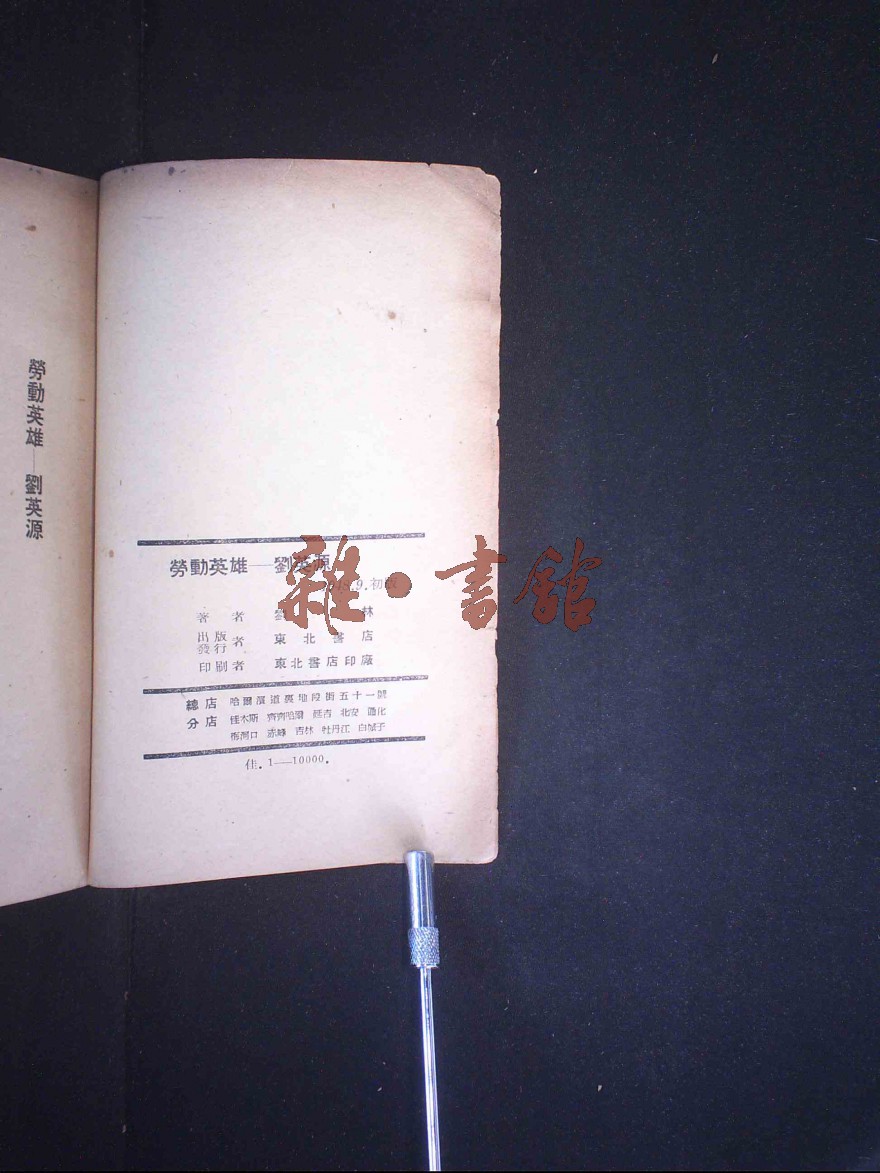 勞動英雄——劉英源
勞動英雄——劉英源
48.9.初版
著者 林
出版
發行者 東北書店
印刷者 東北書店印廠
總店 哈爾濱道裏地段街五十一號
分店 佳木斯 齊齊哈爾 延吉 北安 通化
梅河口 赤峰 吉林 牡丹江 白城子
佳.1—10000.
雜·書館